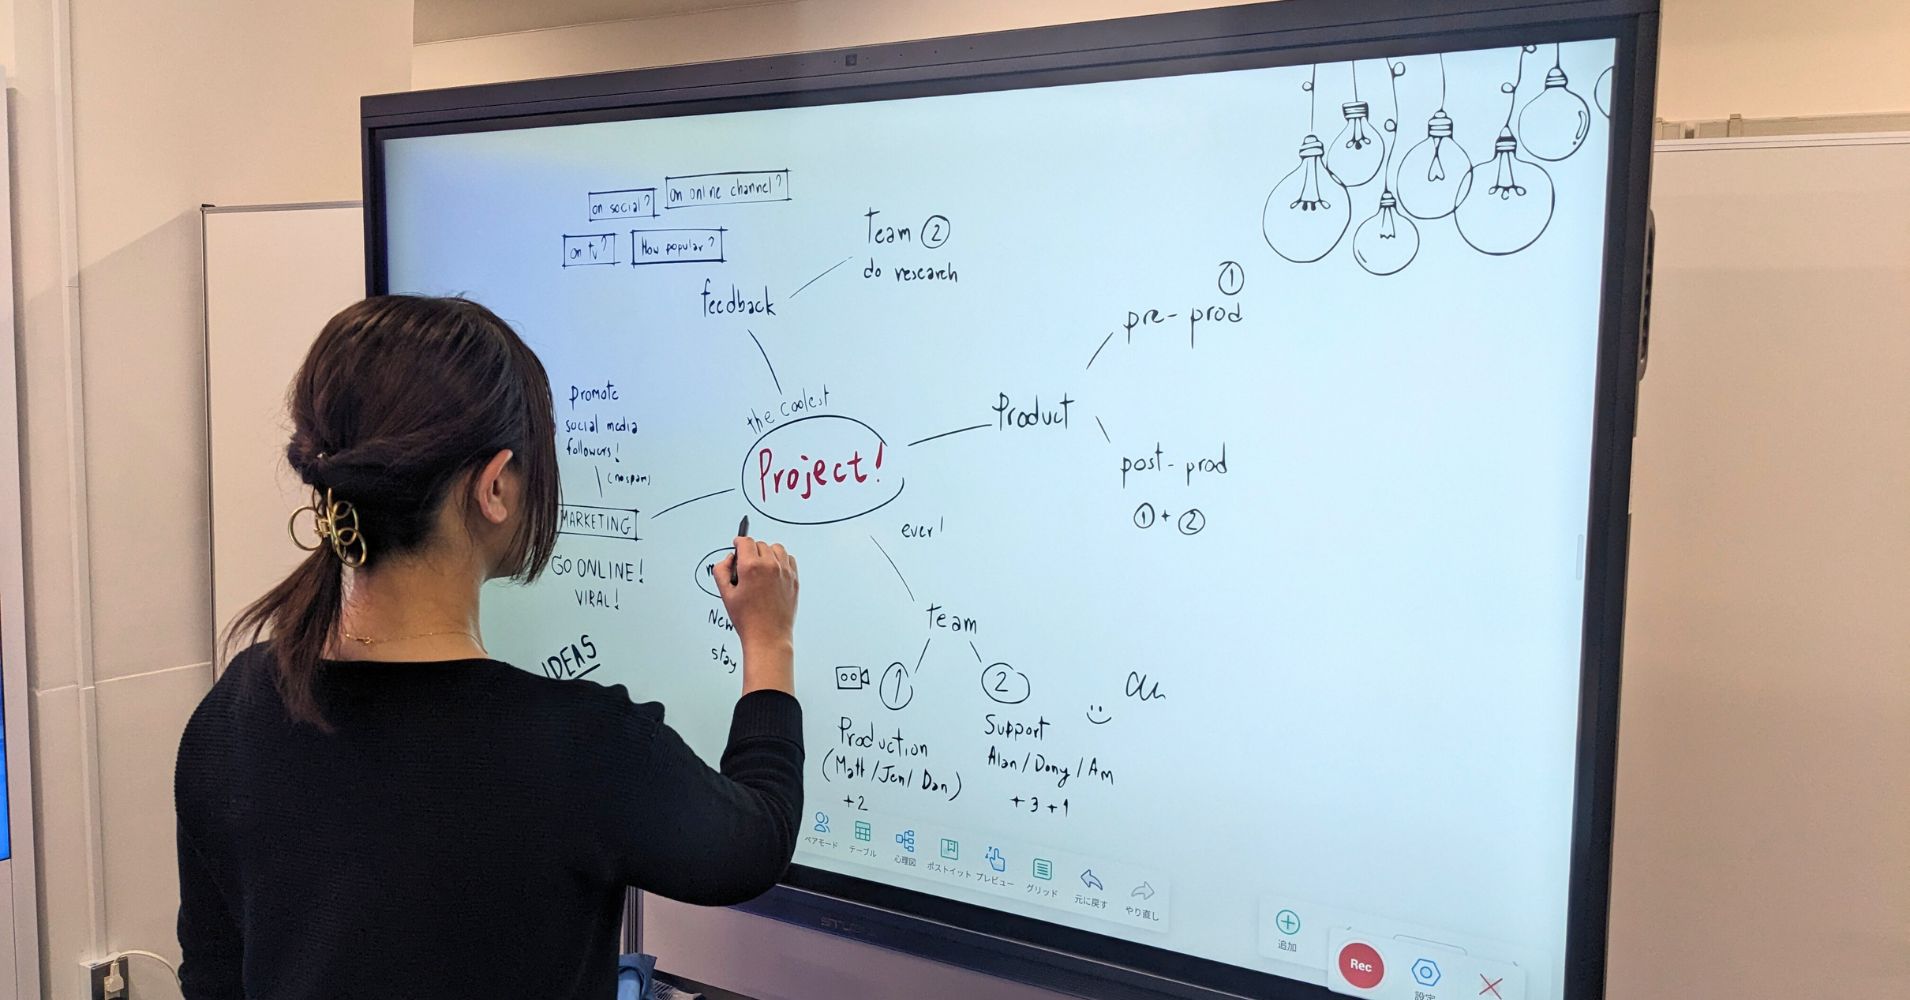 on social?
on online channel?
on tv?
How popular?
Team ②
do research
feedback
①
pre-prod
Product
post-prod
①+②
the coolest
Project!
ever!
promote
social media
followers!
(no spam)
MARKETING
GO ONLINE!
VIRAL!
IDEAS
New
stay
Team
①
②
Production
(Matt/Jen/Dan)
+2
Support
Alan/Dony/Am
+3 +1
ペアモード
テーブル
心理図
ポストイット
プレビュー
グリッド
元に戻す
やり直し
追加
Rec
設定